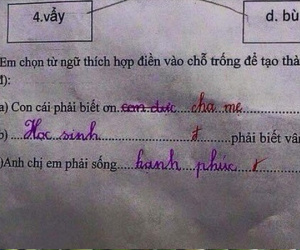 4.vẩy
d. bù
Em chọn từ ngữ thích hợp điền vào chỗ trống để tạo thà
):
a) Con cái phải biết ơn....con đưc....cha mẹ
b)....Học sinh....đ....phải biết vâ
)Anh chị em phải sống....hạnh phuc....đ